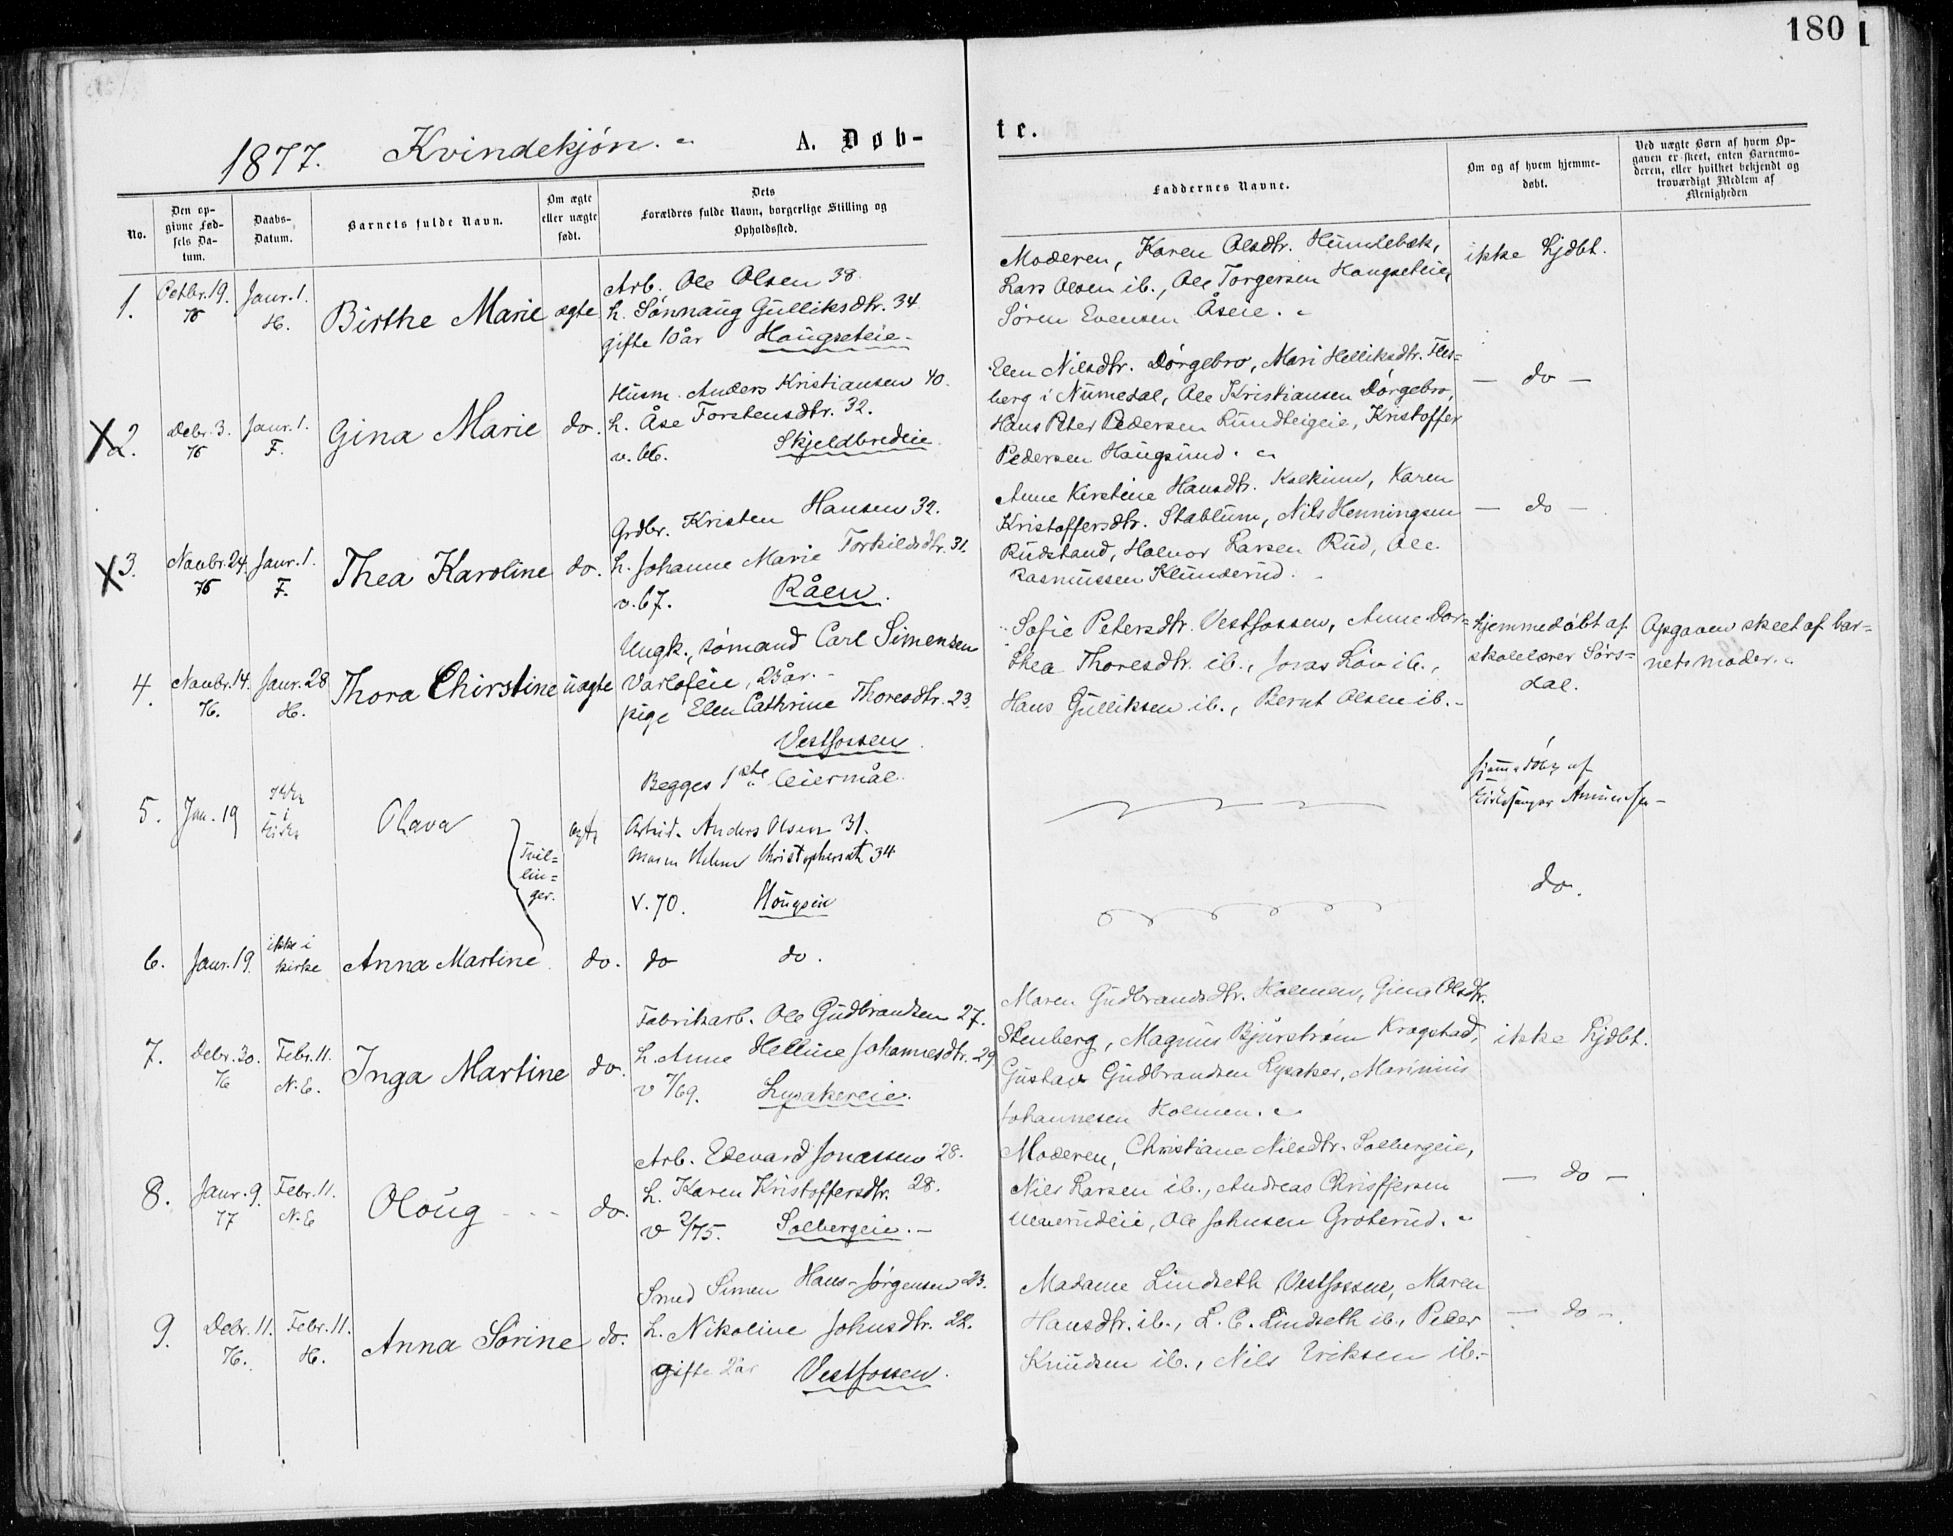 180
1877. Kvindekjøn.
A. Døb-
te.
No.
Den op-
givne Fød-
sels Da-
tum.
Daabs-
Datum.
Barnets fulde Navn.
Om ægte
eller uægte
født.
Dets
Forældres fulde Navn, borgerlige Stilling og
Opholdssted.
Faddernes Navne.
Om og af hvem hjemme-
døbt.
Ved uægte Børn af hvem Op-
gaven er skeet, enten Barnemo-
deren, eller hvilket bekjendt og
troværdigt Medlem af
Menigheden
1.
Octbr. 19.
76
Janr. 1.
H.
Birthe Marie
ægte
Arb. Ole Olsen 38.
h. Sønnaug Gulliksdtr. 34
gifte 10 år Haugseteie
Moderen, Karen Olsdtr. Humlebæk,
Lars Olsen ib., Ole Torgersen Haugseteie,
Søren Evensen Åseie.
ikke hjdbt.
X 2.
Debr. 3.
76
Janr. 1.
F.
Gina Marie
do.
Husm. Anders Kristiansen 40.
h. Åse Torstensdtr. 32.
v. 66. Skjeldbredeie
Elen Nilsdtr. Dørgebro, Mari Helliksdtr. Fles=
berg i Numedal, Ole Kristiansen Dørgebro,
Hans Peter Pedersen Lundteigeie, Kristoffer
Pedersen Haugsund.
— do —
X 3.
Novbr. 24.
76
Janr. 1.
F.
Thea Karoline
do.
Grdbr. Kristen Hansen 32.
h. Johanne Marie Torkildsdtr. 31.
v. 67. Råen.
Anne Kirstine Hansdtr. Kolkinn, Karen
Kristoffersdtr. Stablum, Nils Henningsen
Rudstand, Halvor Larsen Rud, Ole
Rasmussen Klunderud.
— do —
4.
Novbr. 14.
76.
Janr. 28
H.
Thora Chirstine
uægte
Ungk., sømand Carl Simensen
Varloeie, 23 år.
pige Elen Cathrine Thoresdtr. 23.
Vestfossen.
Begges 1ste leiermål.
Sofie Petersdtr. Vestfossen, Anne Dor=
thea Thoresdtr. ib., Jonas Løv ib.,
Hans Gulliksen ib., Bernt Olsen ib.
hjemmedøbt af
skolelærer Sørs=
dal.
Opgaven skeet af bar=
nets moder.
5.
Jan. 19
Ikke
i
Kirke
Olava
Tvil=
lin=
ger.
ægte
Arbeid. Anders Olsen 31.
Maren Helene Christophersdt 34
V. 70. Hougsein
hjemmedøbt af
Kirkesanger Amundsen
6.
Janr. 19.
ikke i
kirke
Anna Martine
do.
do do.
do.
7.
Debr. 30.
76
Febr. 11.
N.E.
Inga Martine
do.
Fabrikarb. Ole Gudbrandsen 27.
h. Anne Helline Johannesdtr. 29
v 7/69. Lysakereie.
Maren Gudbrandsdtr. Holmen, Gina Olsdtr.
Stenberg, Magnus Bjurstrøm Krogstad,
Gustav Gudbrandsen Lysaker, Marinius
Johannesen Holmen.
ikke hjdbt.
8.
Janr. 9.
77
Febr. 11.
N.E
Oloug
do.
Arb. Edevard Jonassen 28.
h. Karen Kristoffersdtr. 28.
v 2/75. Solbergeie.
Moderen, Christiane Nilsdtr. Solbergeie,
Nils Larsen ib., Andreas Chrisffersen
Ulverudeie, Ole Johnsen Groterud.
— do —
9.
Debr. 11.
76.
Febr. 11.
H.
Anna Sørine
do.
Smed Simen Hans-Jørgensen 23.
h. Nikoline Johnsdtr. 22.
gifte 2 år Vestfossen.
Madame Lindseth Vestfossen, Maren
Hansdtr. ib., L. C. Lindseth ib., Peder
Knudsen ib., Nils Eriksen ib.
— do —